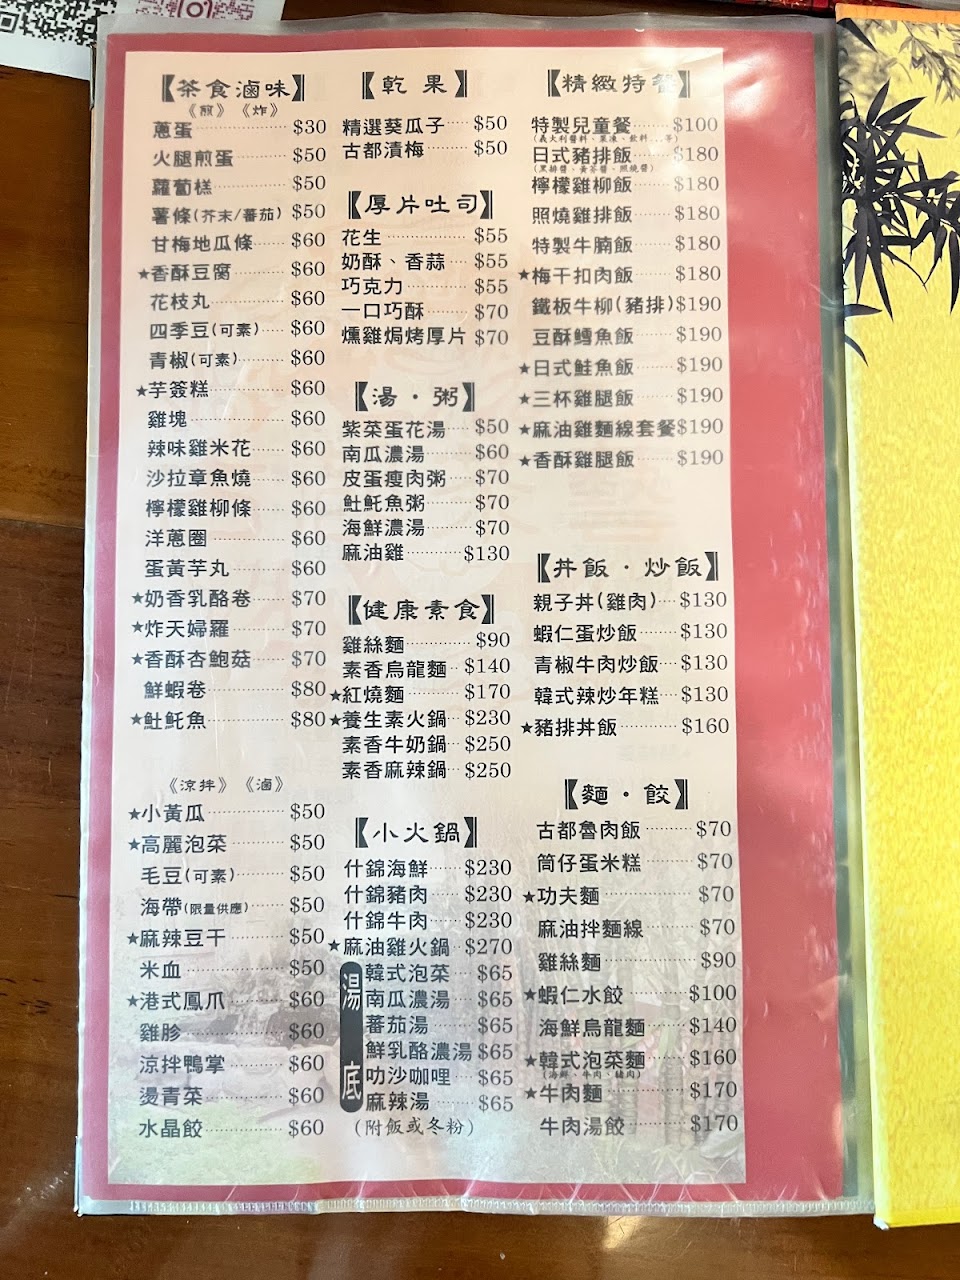 【茶食滷味】
《煎》《炸》
蔥蛋 $30
火腿煎蛋 $50
蘿蔔糕 $50
薯條(芥末/蕃茄) $50
甘梅地瓜條 $60
★香酥豆腐 $60
花枝丸 $60
四季豆(可素) $60
青椒(可素) $60
★芋簽糕 $60
雞塊 $60
辣味雞米花 $60
沙拉章魚燒 $60
檸檬雞柳條 $60
洋蔥圈 $60
蛋黃芋丸 $60
★奶香乳酪卷 $70
★炸天婦羅 $70
★香酥杏鮑菇 $70
鮮蝦卷 $80
★魠魠魚 $80
《涼拌》《滷》
★小黃瓜 $50
★高麗泡菜 $50
毛豆(可素) $50
海帶(限量供應) $50
★麻辣豆干 $50
米血 $50
★港式鳳爪 $60
雞胗 $60
涼拌鴨掌 $60
燙青菜 $60
水晶餃 $60
【乾果】
精選葵瓜子 $50
古都漬梅 $50
【厚片吐司】
花生 $55
奶酥、香蒜 $55
巧克力 $55
一口巧酥 $70
燻雞焗烤厚片 $70
【湯·粥】
紫菜蛋花湯 $50
南瓜濃湯 $60
皮蛋瘦肉粥 $70
魠魠魚粥 $70
海鮮濃湯 $70
麻油雞 $130
【健康素食】
雞絲麵 $90
素香烏龍麵 $140
★紅燒麵 $170
★養生素火鍋 $230
素香牛奶鍋 $250
素香麻辣鍋 $250
【小火鍋】
什錦海鮮 $230
什錦豬肉 $230
什錦牛肉 $230
★麻油雞火鍋 $270
湯底
韓式泡菜 $65
南瓜濃湯 $65
蕃茄湯 $65
鮮乳酪濃湯 $65
叻沙咖哩 $65
麻辣湯 $65
(附飯或冬粉)
【精緻特餐】
特製兒童餐 $100
(義大利醬料、果凍、飲料...等)
日式豬排飯 $180
(黑排醬、黃芥醬、照燒醬)
檸檬雞柳飯 $180
照燒雞排飯 $180
特製牛腩飯 $180
★梅干扣肉飯 $180
鐵板牛柳(豬排) $190
豆酥鱈魚飯 $190
★日式鮭魚飯 $190
★三杯雞腿飯 $190
★麻油雞麵線套餐 $190
★香酥雞腿飯 $190
【丼飯·炒飯】
親子丼(雞肉) $130
蝦仁蛋炒飯 $130
青椒牛肉炒飯 $130
韓式辣炒年糕 $130
★豬排丼飯 $160
【麵·餃】
古都魯肉飯 $70
筒仔蛋米糕 $70
★功夫麵 $70
麻油拌麵線 $70
雞絲麵 $90
★蝦仁水餃 $100
海鮮烏龍麵 $140
★韓式泡菜麵 $160
(海鮮、牛肉、豬肉)
★牛肉麵 $170
牛肉湯餃 $170